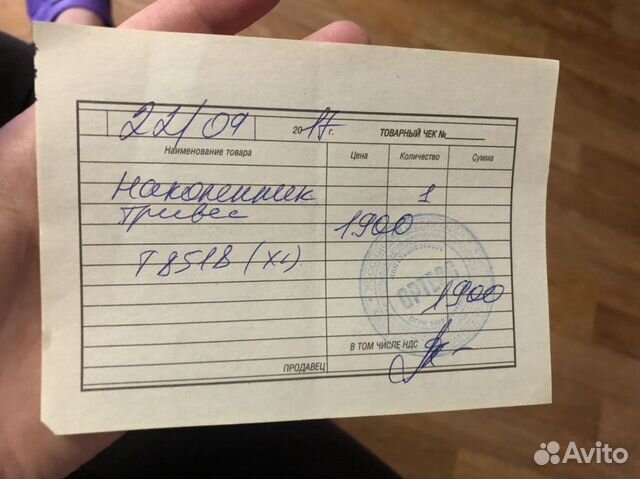 22/09 2017г. ТОВАРНЫЙ ЧЕК №
Наименование товара Цена Количество Сумма
Наколенник 1
Тривес 1900
Т8518 (XL)
ОРТЕКА
1900
В ТОМ ЧИСЛЕ НДС
ПРОДАВЕЦ
Avito